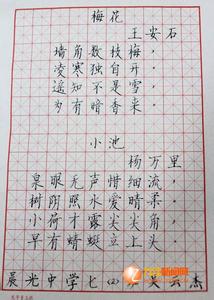 梅花
王安石
墙角数枝梅，
凌寒独自开。
遥知不是雪，
为有暗香来。
小池
杨万里
泉眼无声惜细流，
树阴照水爱晴柔。
小荷才露尖尖角，
早有蜻蜓立上头。
晨光中学七（2） 吴云杰